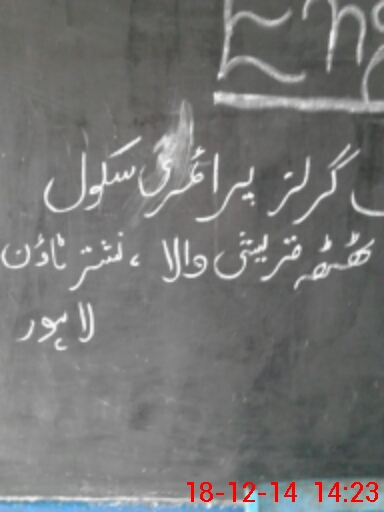 Eng
گرلز پرائمری سکول
ٹھٹھہ قریشی والا، نشتر ٹاؤن
لاہور
18-12-14 14:23